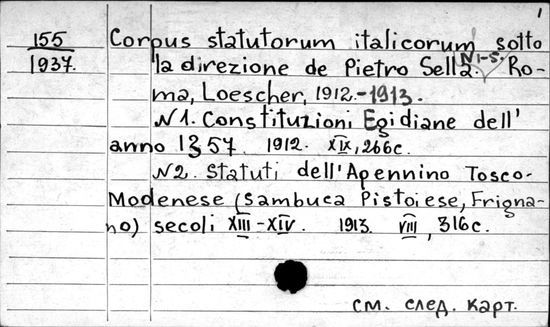 1
155 Corpus statutorum italicorum sotto
1937. la direzione de Pietro Sella. N1-5. Ro-
ma, Loescher, 1912.-1913.
N1. Constituzioni Egidiane dell'
anno 1357. 1912. XIX, 266c.
N2. Statuti dell'Apennino Tosco-
Modenese (Sambuca Pistoiese, Frigna-
no) secoli XIII-XIV. 1913. VIII, 316c.
см. след. карт.